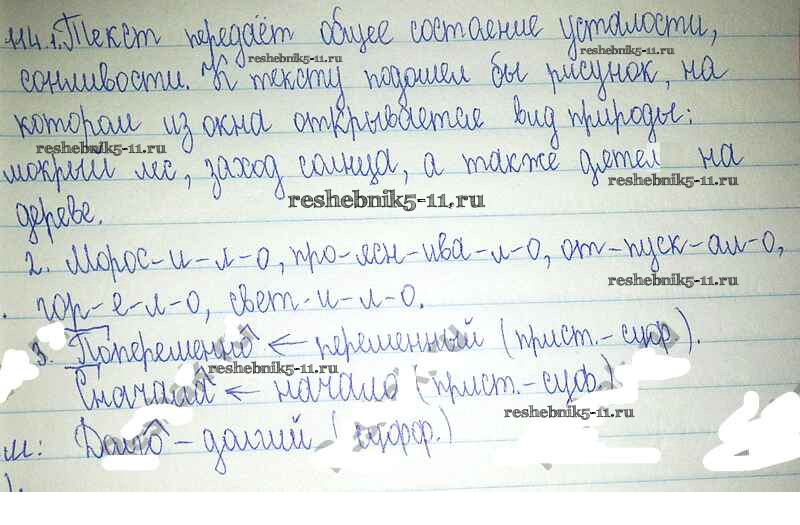 114.1. Текст передаёт общее состаение усталости,
reshebnik5-11.ru
reshebnik5-11.ru
сонливости. К тексту подошел бы рисунок, на
котором из окна открывается вид природы:
reshebnik5-11.ru
мокрый лес, заход солнца, а также дятел на
reshebnik5-11.ru
reshebnik5-11.ru
дереве.
2. Морос-и-л-о, про-ясн-ива-л-о, от-пуск-ал-о,
reshebnik5-11.ru
гор-е-л-о, свет-и-л-о.
3. Попеременно ← переменный (прист.-суф.).
reshebnik5-11.ru
Сначала ← начало (прист.-суф.)
reshebnik5-11.ru
Долго - долгий (суфф.)